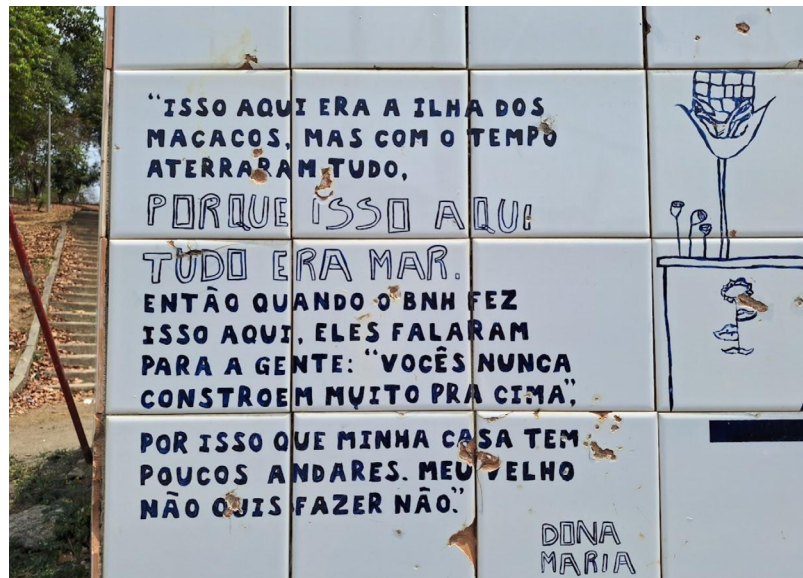 "ISSO AQUI ERA A ILHA DOS
MACACOS, MAS COM O TEMPO
ATERRARAM TUDO,
PORQUE ISSO AQUI
TUDO ERA MAR.
ENTÃO QUANDO O BNH FEZ
ISSO AQUI, ELES FALARAM
PARA A GENTE: "VOCÊS NUNCA
CONSTROEM MUITO PRA CIMA",
POR ISSO QUE MINHA CASA TEM
POUCOS ANDARES. MEU VELHO
NÃO QUIS FAZER NÃO."
DONA
MARIA